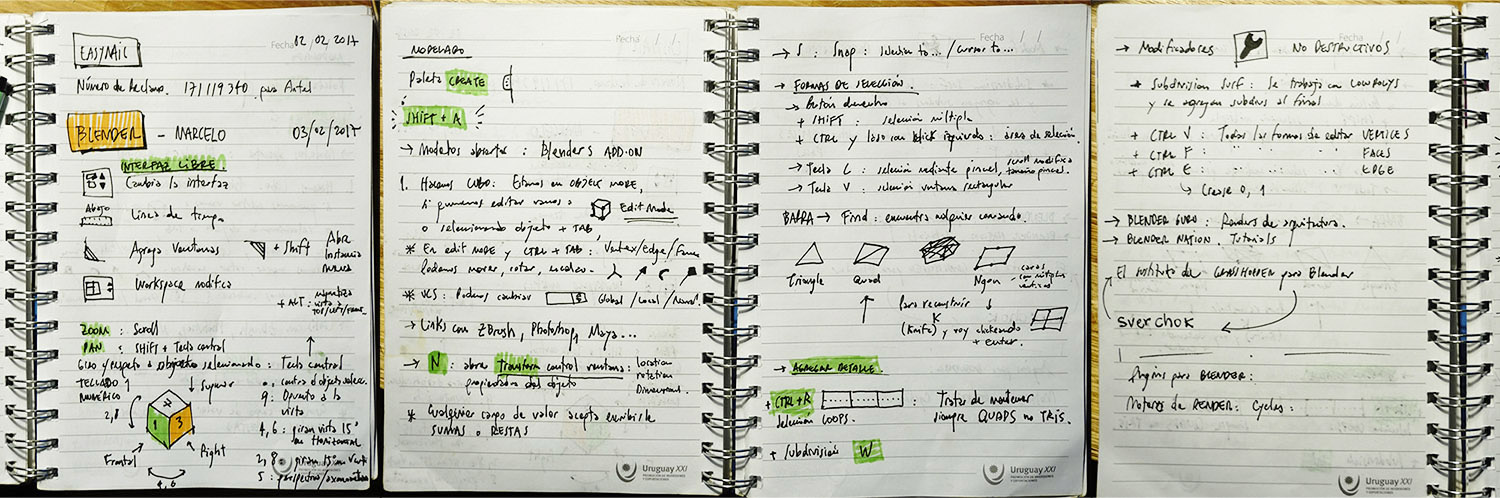 EASYMAIL
Fecha 02/02/2017
Número de Reclamo. 171119340 para Antel
BLENDER - MARCELO 03/02/2017
INTERFAZ LIBRE
Cambia la interfaz
Abajo
Linea de tiempo
Agrega ventanas
+ Shift Abre Instancia nueva
Workspace
+ ALT:
ZOOM : Scroll
PAN : SHIFT + Tecla control
Giro y respeto a objeto seleccionando : Tecla control
TECLADO
NUMÉRICO
Superior
. centra el objeto selecc.
9: Opuesto a la vista
2,8
7
1
3
4,6 : giran vista 15° en Horizontal
Frontal
Right
2, 8 : giran 15° en Verti
4,6
5 : perspectiva/axonométrica
Uruguay XXI
MODELADO
Fecha / /
Paleta CREATE
SHIFT + A
→ Modelos abiertos : Blenders ADD-ON
1. Hacemos CUBO: Estamos en OBJECT MODE,
si queremos editar vamos a Edit Mode
o seleccionando objeto + TAB,
* En edit MODE y CTRL + TAB : Vertex/Edge/Faces
Podemos mover, rotar, escalar.
* UCS : Podemos cambiar Global / Local / Normal.
→ Links con ZBrush, Photoshop, Maya...
→ N : abre Transform control ventana : location
rotation
Dimensional
propiedades del objeto
* Cualquier campo de valor acepta escribirle
SUMAS o RESTAS
Uruguay XXI
PROMOCIÓN DE INVERSIONES
Y EXPORTACIONES
Fecha / /
→ S : Snap : selection to... / cursor to...
→ FORMAS DE SELECCIÓN.
→ Botón derecho
+ SHIFT : selección múltiple
+ CTRL y lazo con klick izquierdo : área de selección.
→ Tecla C : selección mediante pincel, scroll modifica tamaño pincel.
→ Tecla V : selección ventana rectangular
BARRA → Find : encuentra cualquier comando.
Triangle
Quad
Ngon
caras con múltiples vértices
Para reconstruir
K
(Knife) y voy clickeando
+ enter.
→ AGREGAR DETALLE.
+ CTRL+R : Tratar de mantener
siempre QUADS no TRIS.
Selección LOOPS.
+ Subdivisión W
Uruguay XXI
PROMOCIÓN DE INVERSIONES
Y EXPORTACIONES
Fecha / /
→ Modificadores NO DESTRUCTIVOS
* Subdivision Surf : Se trabaja con LOWPOLYS
y se agregan subdivs al final
+ CTRL V : Todas las formas de editar VERTICES
+ CTRL F : " " " FACES
+ CTRL E : " " " EDGE
↳ Crease 0, 1
→ BLENDER GURU : Renders de arquitectura.
→ BLENDER NATION. Tutorials
El instituto de GRASSHOPPER para Blender
sverchok
Plugins para BLENDER :
Motores de RENDER: Cycles :
Uruguay XXI
PROMOCIÓN DE INVERSIONES
Y EXPORTACIONES